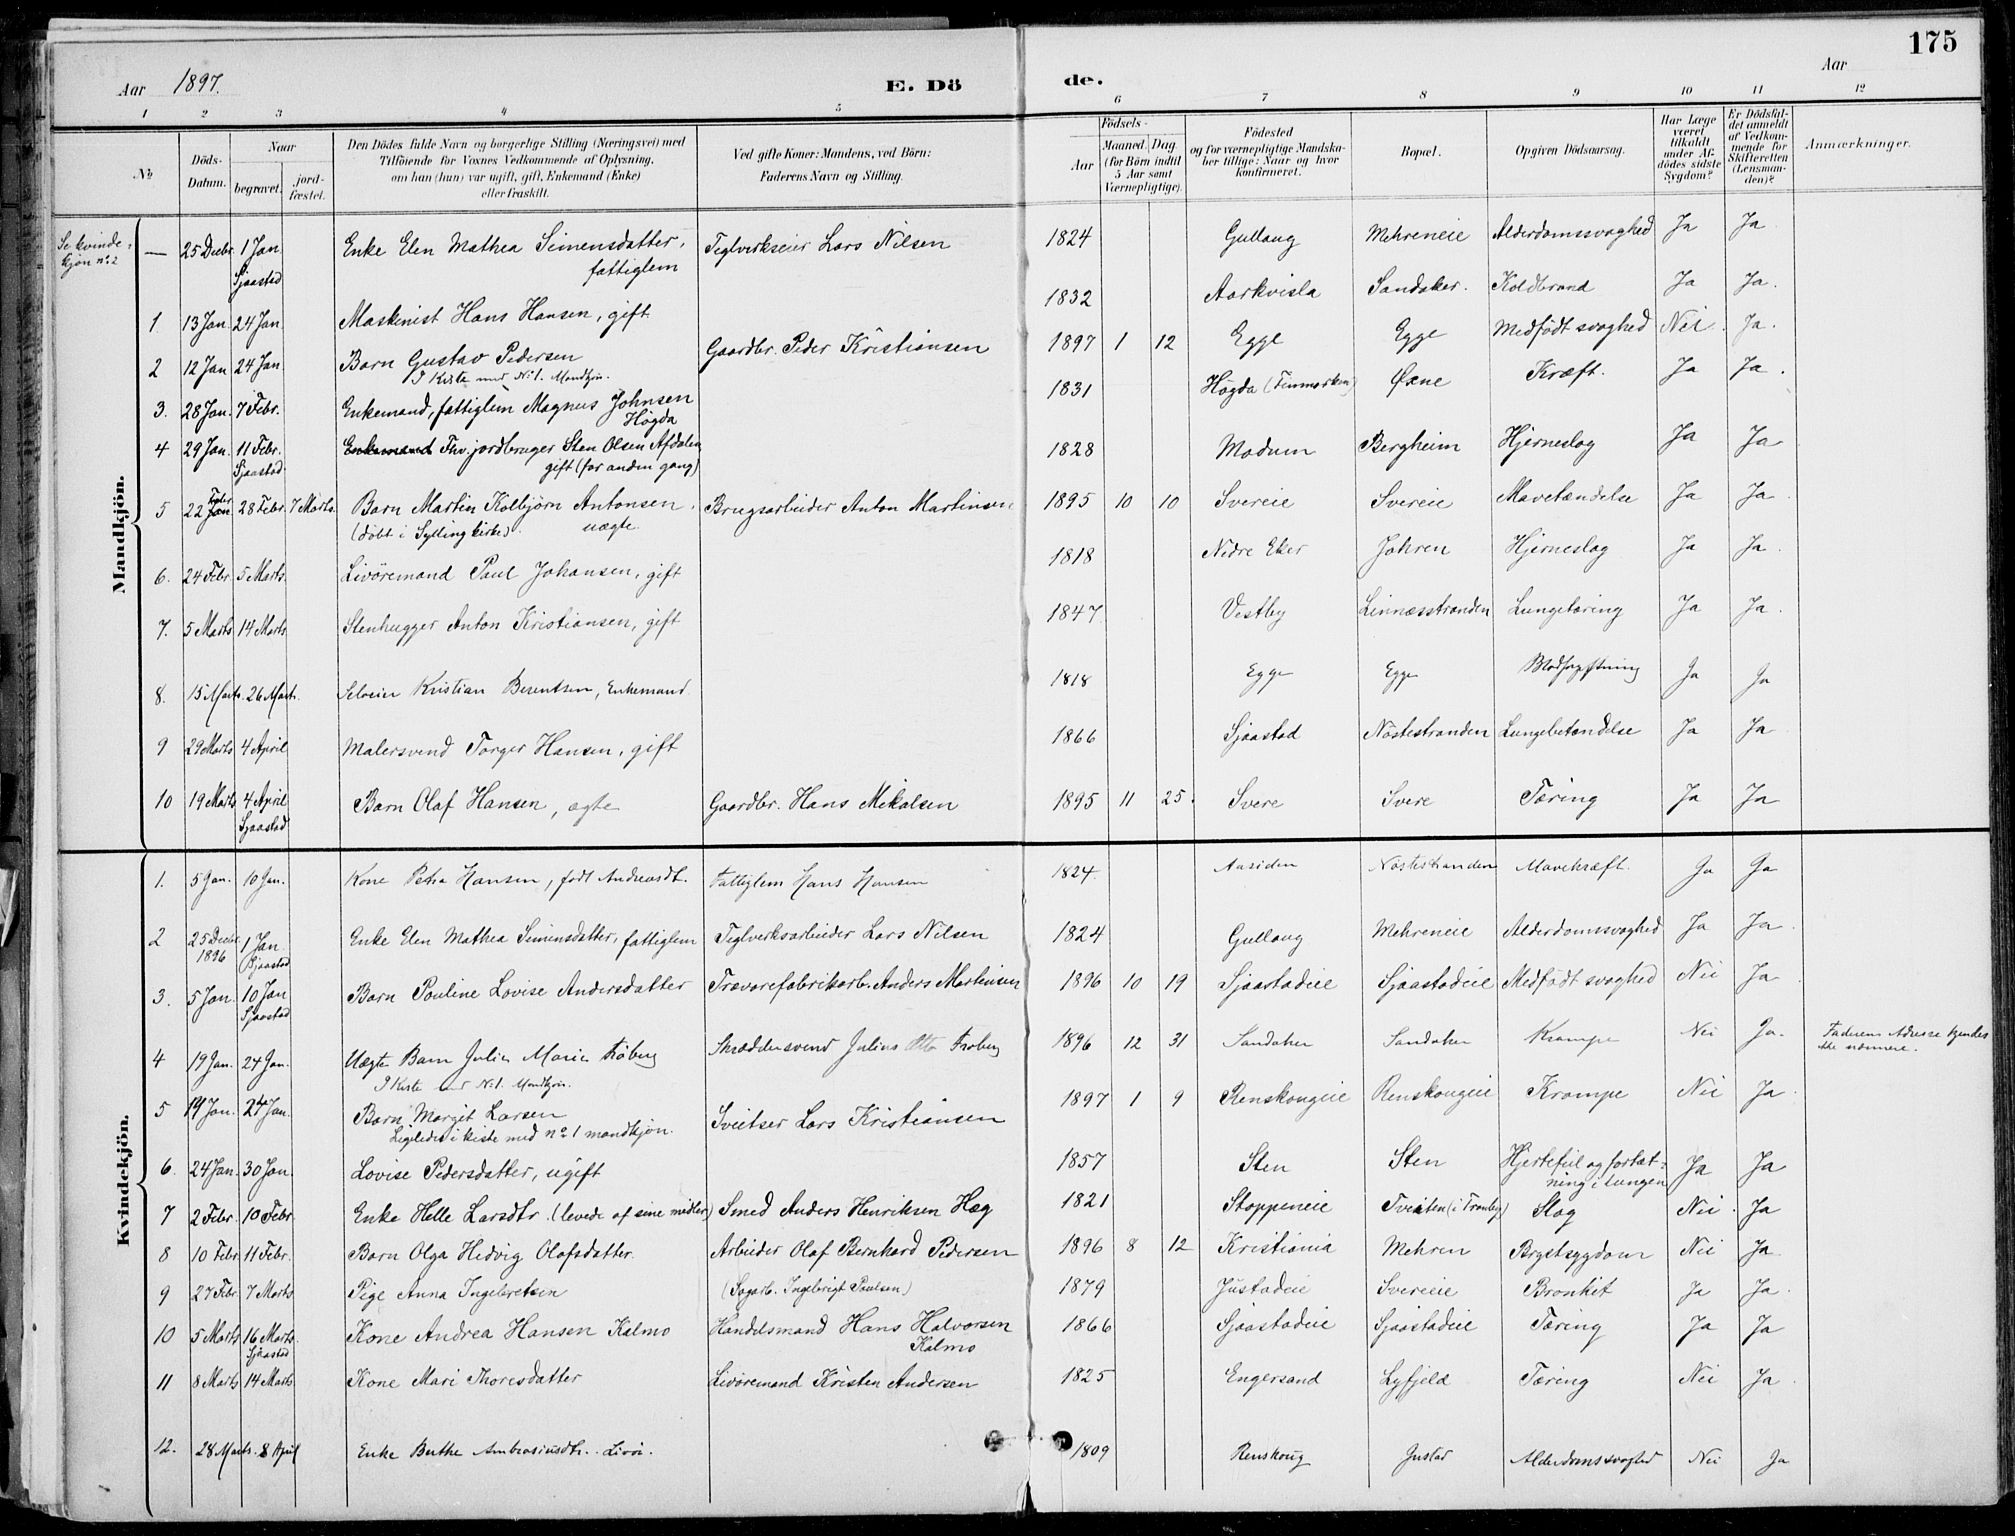 175
Aar 1897. E. Dö de. Aar
1 2 3 4 5 6 7 8 9 10 11 12
No
Döds-Datum.
Naar begravet. jordfæstet.
Den Dödes fulde Navn og borgerlige Stilling (Næringsvei) med Tilföiende for Voxnes Vedkommende af Oplysning, om han (hun) var ugift, gift, Enkemand (Enke) eller fraskilt.
Ved gifte Koner: Mandens, ved Börn: Faderens Navn og Stilling.
Födsels- Aar Maaned. Dag. (for Börn indtil 5 Aar samt Værnepligtige).
Födested og for værnepligtige Mandskaber tillige: Naar og hvor konfirmeret.
Bopæl.
Opgiven Dödsaarsag.
Har Læge været tilkaldt under Afdödes sidste Sygdom?
Er Dödsfaldet anmeldt af Vedkommende for Skifteretten (Lensmanden)?
Anmærkninger.
Mandkjön.
Se kvindekjøn no 2 — 25 Decbr. 1 Jan. Sjaastad Enke Elen Mathea Simensdatter, fattiglem Teglverkseier Lars Nilsen 1824 Gullaug Mehreneie Alderdomssvaghed Ja Ja
1. 13 Jan. 24 Jan. Maskinist Hans Hansen, gift. 1832 Aarkvisla Sandaker. Koldbrand Ja Ja.
2 12 Jan 24 Jan. Barn Gustav Pedersen I Kiste med No 1. Mandkjøn. Gaardbr. Peder Kristiansen 1897 1 12 Egge Egge Medfödt svaghed Nei. Ja.
3. 28 Jan. 7 Febr. Enkemand, fattiglem Magnus Johnsen Høgda 1831 Høgda (Finmarken) Øxne Kræft. Ja Ja.
4 29 Jan. 11 Febr. Sjaastad Enkemand Fhv. jordbruger Sten Olsen Afdalen gift (for anden gang) 1828 Modum Bergheim Hjerneslag Ja Ja
5 22 Febr. Jan 28 Febr. 7 Marts. Barn Martin Kolbjørn Antonsen, uægte. (døbt i Sylling kirke). Brugsarbeider Anton Martinsen 1895 10 10 Svereie Svereie Mavetændelse Ja Ja
6. 24 Febr. 5 Marts. Livöremand Paul Johansen, gift 1818 Nedre Eker Johren Hjerneslag Ja Ja.
7. 5 Marts 14 Marts. Stenhugger Anton Kristiansen, gift 1847 Vestby Linnæsstranden Lungetæring Ja Ja.
8. 15 Marts. 26 Marts. Selveier Kristian Berentsen, Enkemand. 1818 Egge Egge Blodforgiftning Ja Ja
9 29 Marts 4 April Malersvend Torger Hansen, gift 1866 Sjaastad Nöstestranden Lungebetændelse Ja Ja
10 19 Marts 4 April Sjaastad Barn Olaf Hansen, ægte Gaardbr. Hans Mikalsen 1895 11 25. Svere Svere Tæring Ja Ja
Kvindekjön.
1. 5 Jan. 10 Jan. Kone Petra Hansen, født Andreasdt. Fattiglem Hans Hansen 1824 Aasiden Nöstestranden Mavekræft. Ja Ja
2 25 Decbr. 1896 1 Jan. Sjaastad Enke Elen Mathea Simensdatter, fattiglem Teglverksarbeider Lars Nilsen 1824 Gullaug Mehreneie Alderdomssvaghed Ja Ja.
3. 5 Jan. 10 Jan. Sjaastad Barn Pauline Lovise Andersdatter Trævarefabrikarb. Anders Martinsen 1896 10 19 Sjaastadeie Sjaastadeie Medfödt svaghed Nei Ja
4 19 Jan. 24 Jan. Uægte Barn Julie Marie Frøberg I Kiste med No 1. Mandkjøn. Skræddersvend Julius Otto Frøberg 1896 12 31 Sandaker Sandaker Krampe Nei Ja. Faderens Adresse kjendes ikke nærmere.
5 19 Jan. 24 Jan. Barn Margit Larsen Ligeledes i kiste med no 1 mandkjøn. Sveitser Lars Kristiansen 1897 1 9 Renskougeie Renskougeie Krampe Nei Ja.
6. 24 Jan. 30 Jan. Lovise Pedersdatter, ugift 1857 Sten Sten Hjertefeil og fortætning i lungen Ja Ja
7 2 Febr. 10 Febr. Enke Helle Larsdtr. (levede af sine midler) Smed Anders Henriksen Hæg 1821 Stoppeneie Tveiten (i Tranby) Slag Nei. Ja
8 10 Febr. 11 Febr. Barn Olga Hedvig Olafsdatter. Arbeider Olaf Bernhard Pedersen 1896 8 12 Kristiania Mehren Brystsygdom Nei Ja.
9 27 Febr. 7 Marts Pige Anna Ingebretsen (Sagarb. Ingebrigt Paulsen) 1879 Justadeie Svereie Bronkit Ja Ja.
10 5 Marts 16 Marts. Sjaastad Kone Andrea Hansen Kalmo Handelsmand Hans Halvorsen Kalmo 1866 Sjaastadeie Sjaastadeie Tæring Ja Ja
11 8 Marts 14 Marts Kone Mari Thoresdatter Livöremand Kristen Andersen 1825 Engersand Lyfjeld Tæring Nei Ja.
12. 28 Marts. 8 April Enke Berthe Ambrosiusdtr. Livør. 1809 Renskoug Justad Alderdomssvaghed Nei Ja